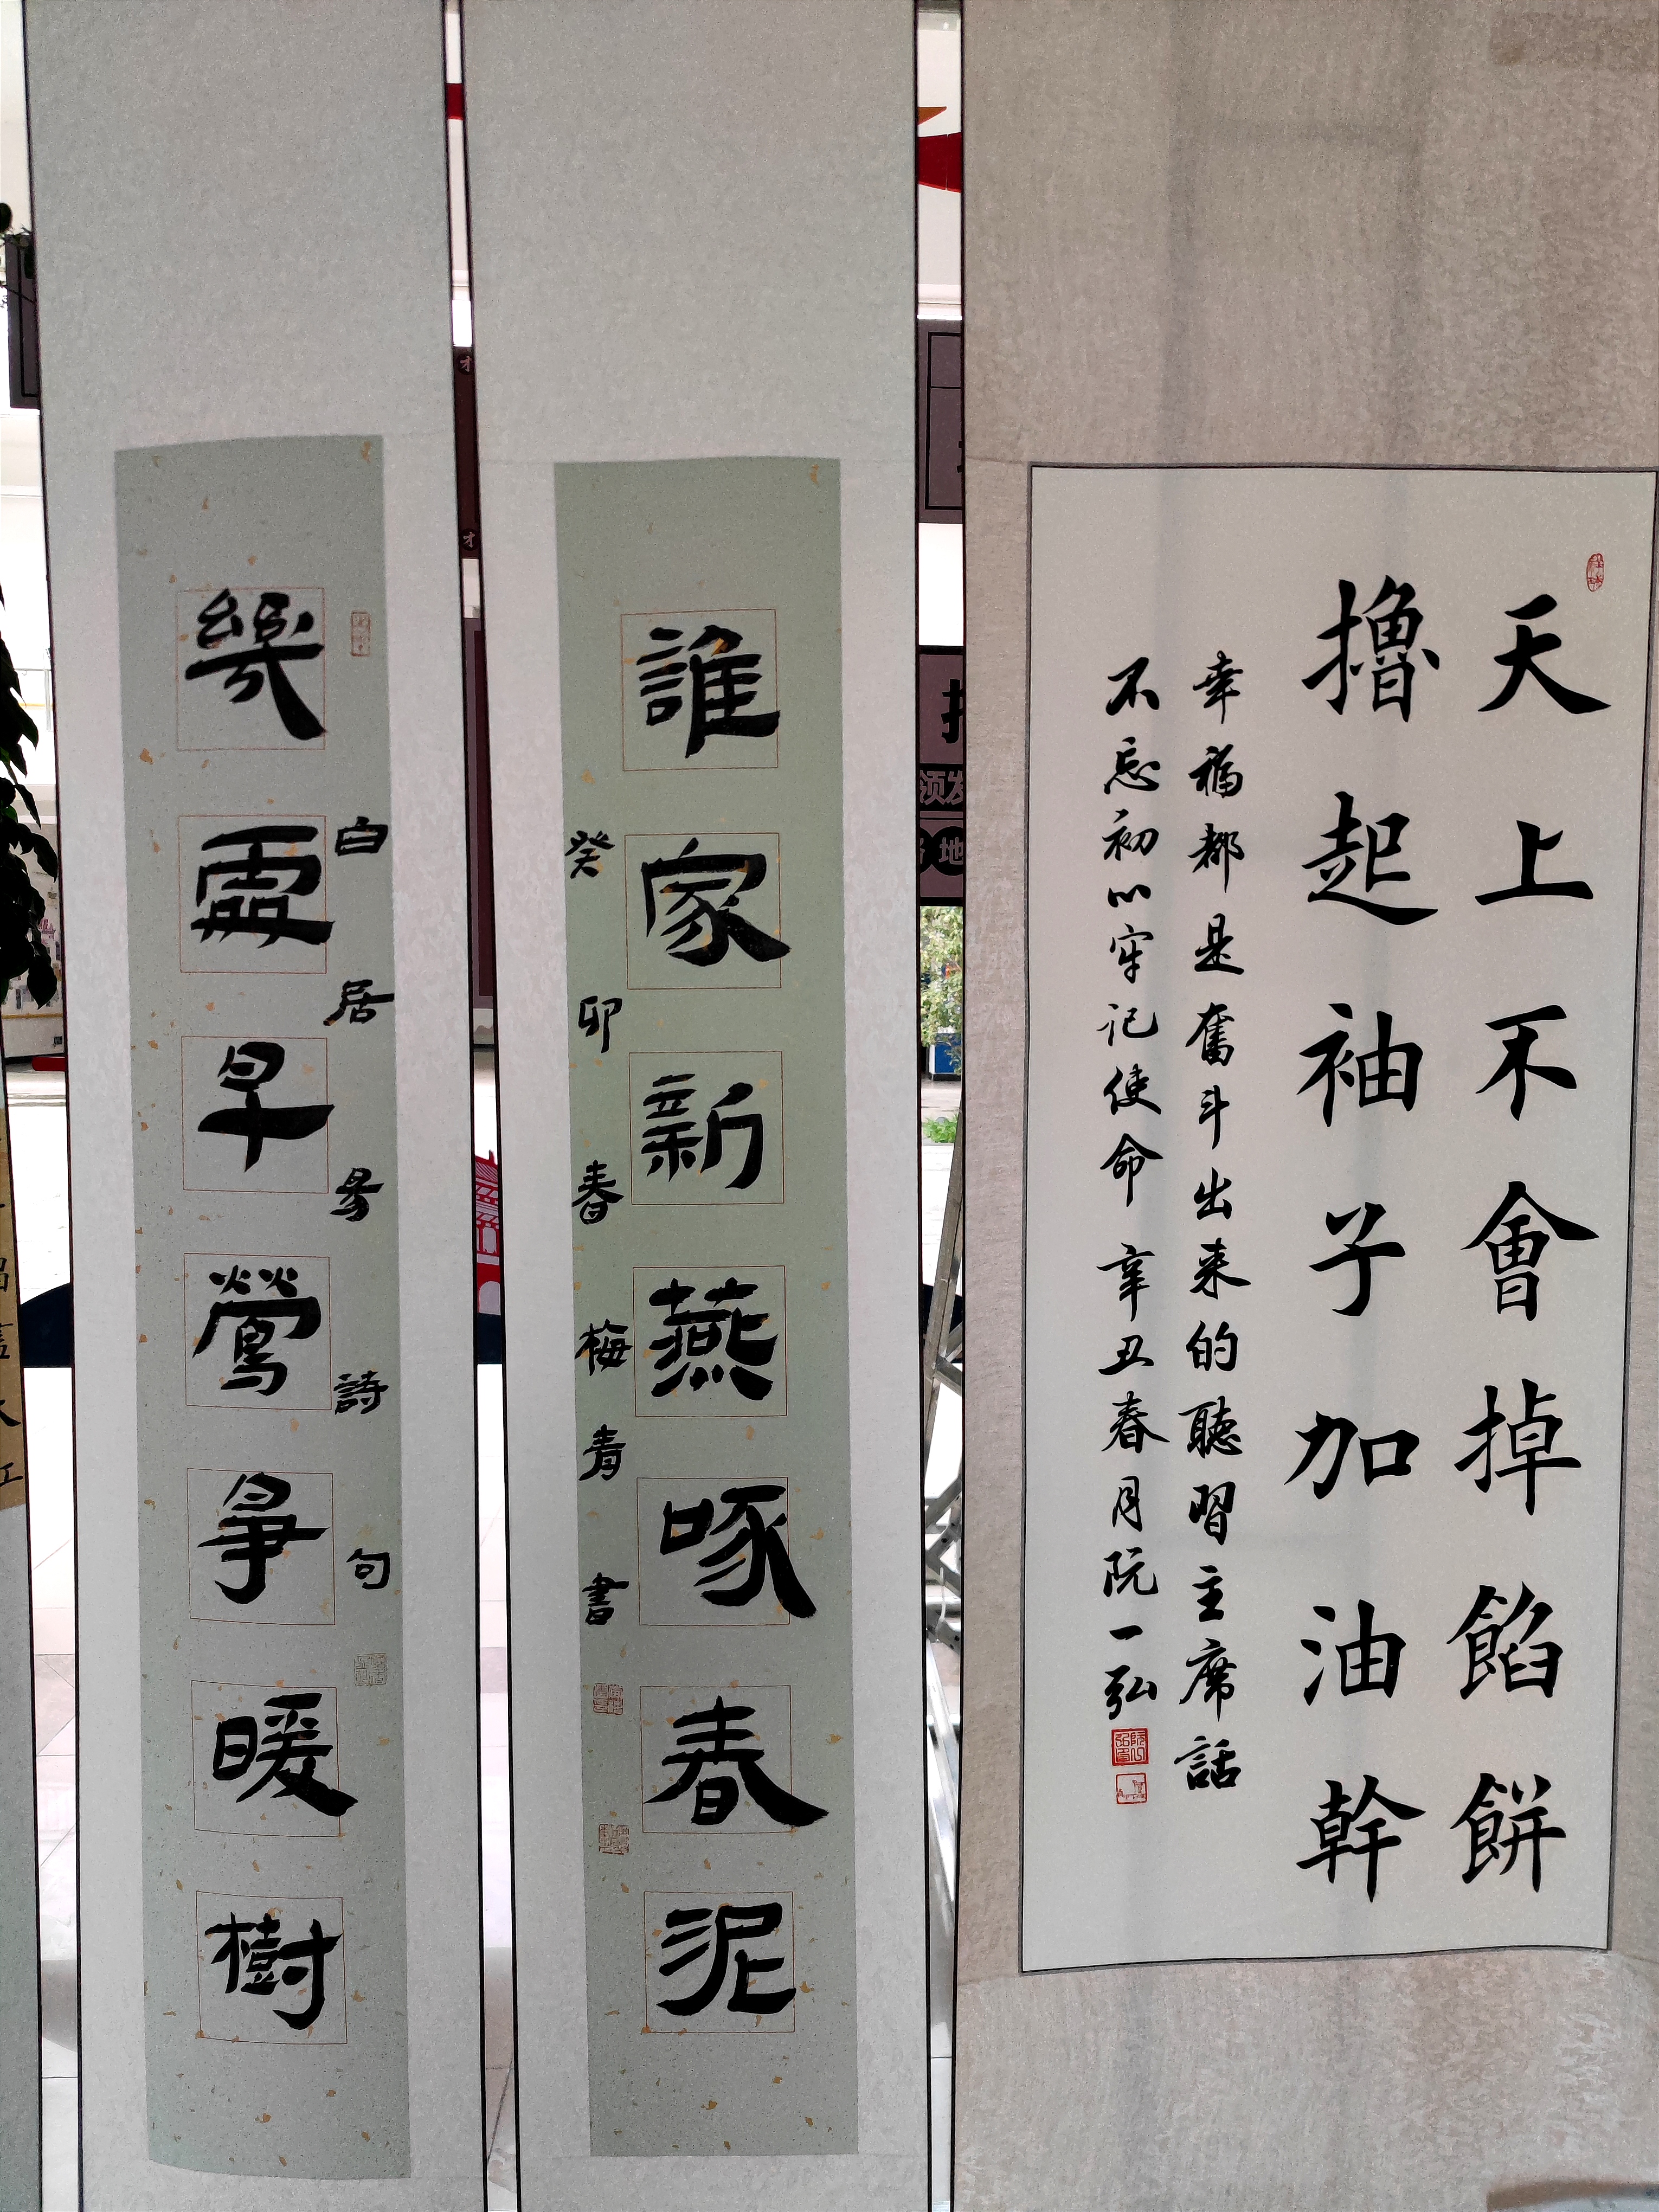 天上不會掉餡餅
擼起袖子加油幹
幸福都是奮斗出来的聽習主席話
不忘初心牢记使命 辛丑春月阮一弘
誰家新燕啄春泥
癸卯春梅青書
幾處早鶯爭暖樹
白居易詩句
领发
地